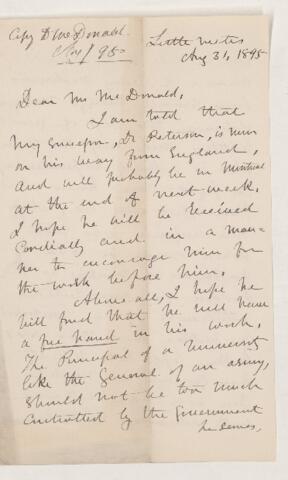 Copy D McDonald
Little Metis
Aug 31, 1895
Dear Mr McDonald,
I am told that
my successor, Dr Peterson, is now
on his way from England,
and will probably be in Montreal
at the end of next week.
I hope he will be received
cordially and in a man=
ner to encourage him for
the work before him.
Above all, I hope he
will find that he will have
a free hand in his work.
The Principal of a University
like the General of an army,
should not be too much
controlled by the Government
he serves,